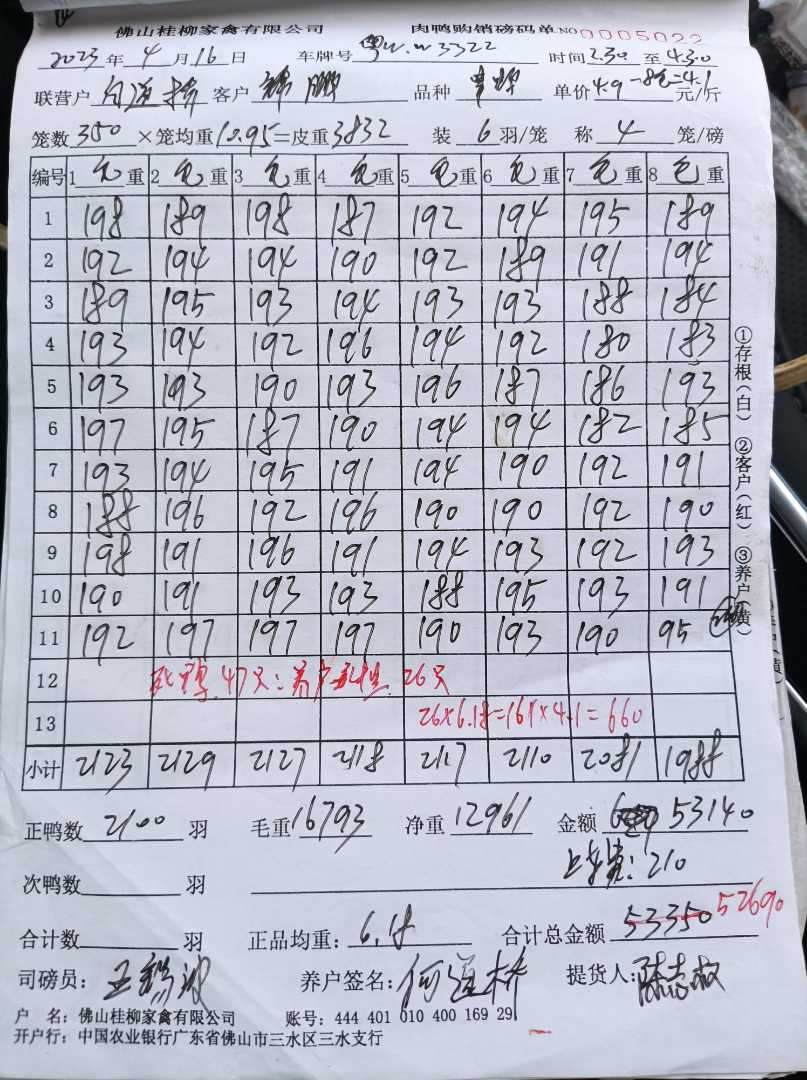 佛山桂柳家禽有限公司 肉鸭购销磅码单 NO 0005022
2023 年 4 月 16 日 车牌号 粤W.W3322 时间 2.30 至 4.30
联营户 何道桥 客户 锦鹏 品种 单价 4.9-8毛=4.1 元/斤
笼数 350 ×笼均重 10.95 =皮重 3832 装 6 羽/笼 称 4 笼/磅
编号 1 毛 重 2 毛 重 3 毛 重 4 毛 重 5 毛 重 6 毛 重 7 毛 重 8 毛 重
1 198 189 198 187 192 194 195 189
2 192 194 194 190 192 189 191 194
3 189 195 193 194 193 193 188 184
4 193 194 192 196 194 192 180 183
5 193 193 190 193 196 187 186 193
6 197 195 187 190 194 194 182 185
7 193 194 195 191 194 190 192 191
8 188 196 192 196 190 190 192 190
9 198 191 196 191 194 193 192 193
10 190 191 193 193 188 195 193 191
11 192 197 197 197 190 193 190 95
12 死 47只: 养户 26只
13 26×6.18=161×4.1=660
小计 2123 2129 2127 2118 2117 2110 2081 1988
正鸭数 2100 羽 毛重 16793 净重 12961 金额 53140
上车费: 210
次鸭数 羽
合计数 羽 正品均重: 6.18 合计总金额 53350 52690
司磅员: 王 养户签名: 何道桥 提货人: 陈志
户 名: 佛山桂柳家禽有限公司 账号: 444 401 010 400 169 29
开户行: 中国农业银行广东省佛山市三水区三水支行
①存根(白) ②客户(红) ③养户(黄)